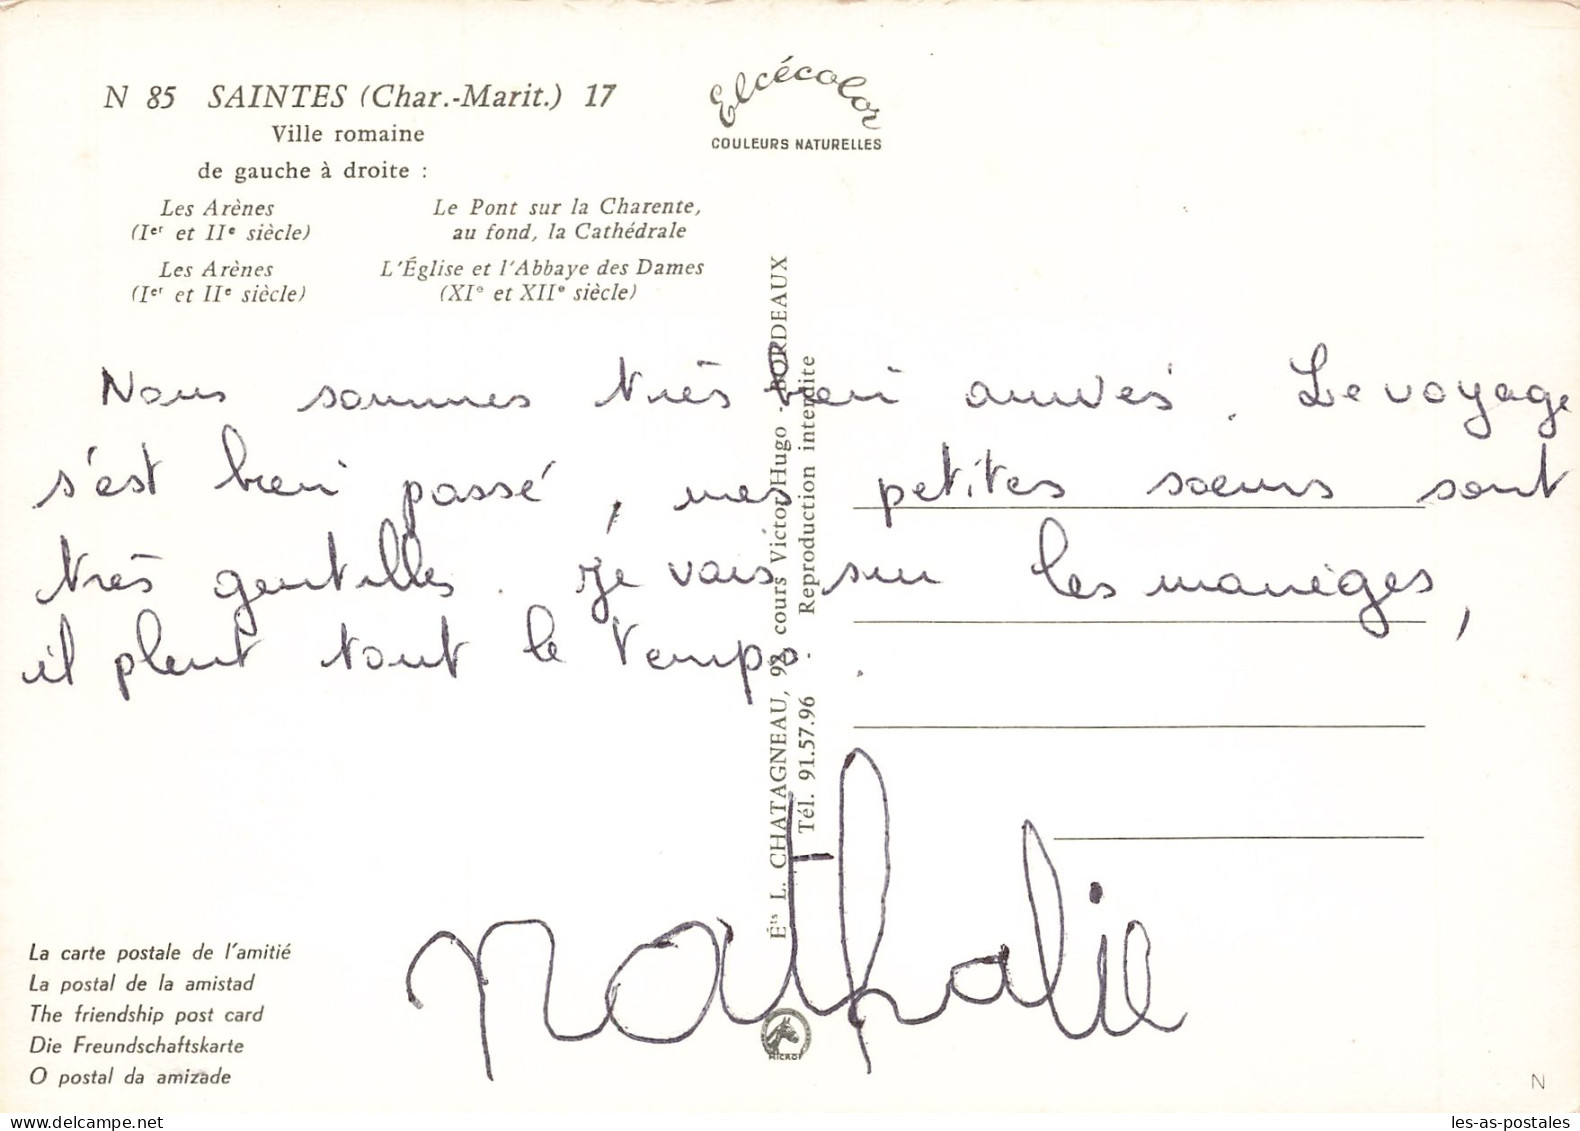 N 85 SAINTES (Char.-Marit.) 17
Ville romaine
de gauche à droite :
Les Arènes
(Ier et IIe siècle)
Le Pont sur la Charente,
au fond, la Cathédrale
Les Arènes
(Ier et IIe siècle)
L'Église et l'Abbaye des Dames
(XIe et XIIe siècle)
Elcécolor
COULEURS NATURELLES
Nous sommes très bien arrivés. Le voyage
s'est bien passé, mes petites sœurs sont
très gentilles. Je vais sur les manèges,
il pleut tout le temps.
Nathalie
Éts L. CHATAGNEAU, 92 cours Victor Hugo - BORDEAUX
Tél. 91.57.96 Reproduction interdite
La carte postale de l'amitié
La postal de la amistad
The friendship post card
Die Freundschaftskarte
O postal da amizade
N
les-as-postales